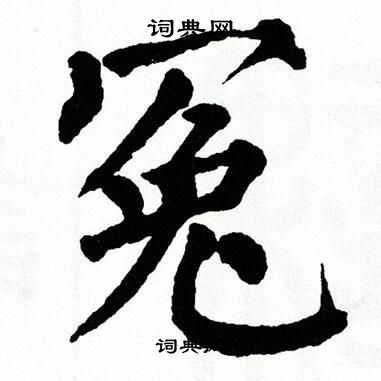 词典网
冤
词典网